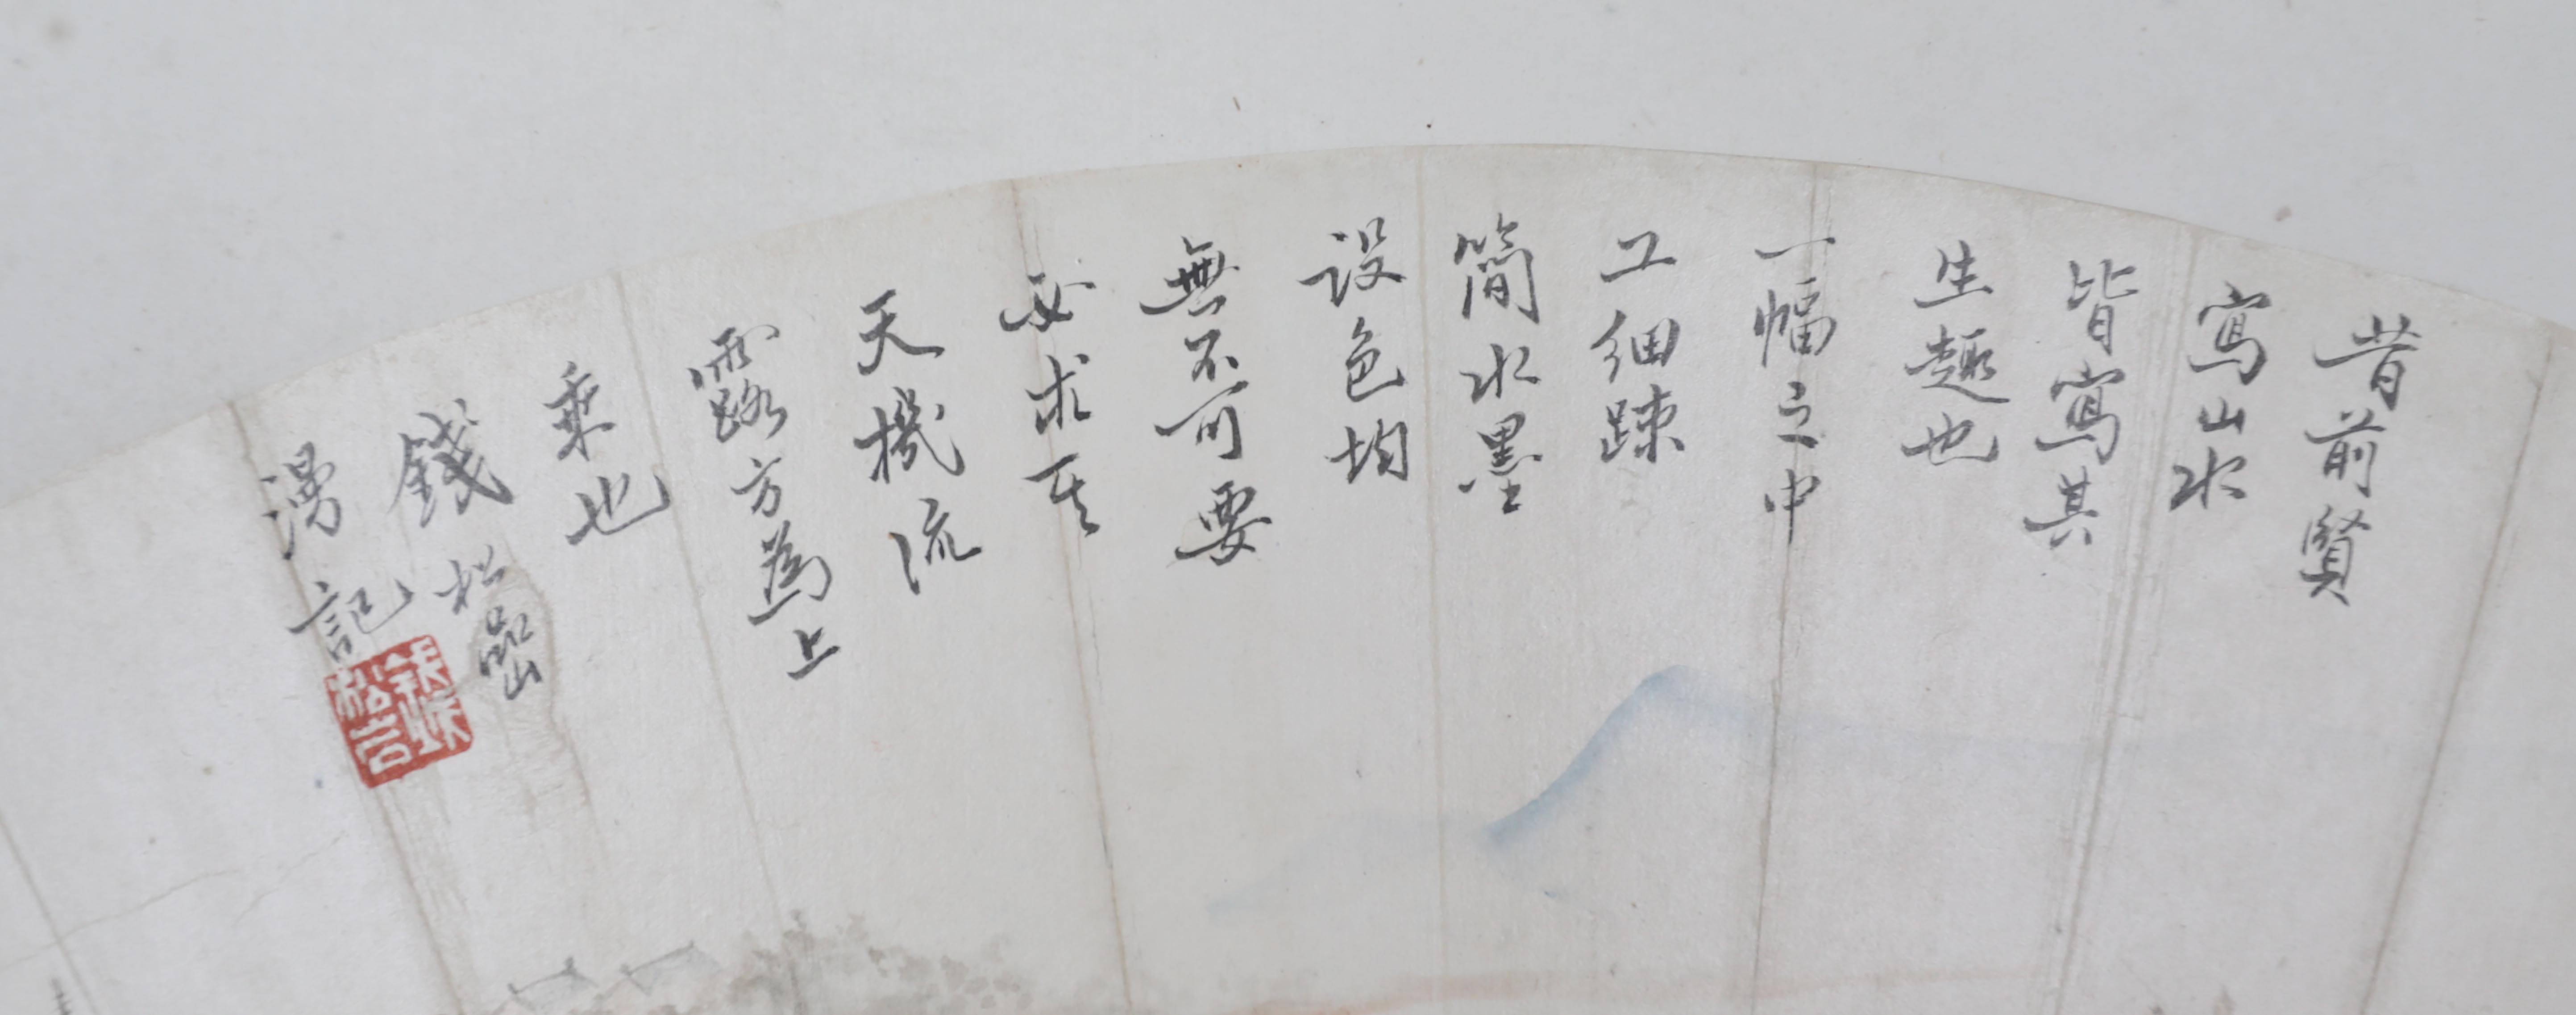 昔前賢
寫山水
皆寫其
生趣也
一幅之中
工細踈
簡水墨
設色均
無不可要
必求其
天機流
露方為上
乘也
錢松嵒
漫記